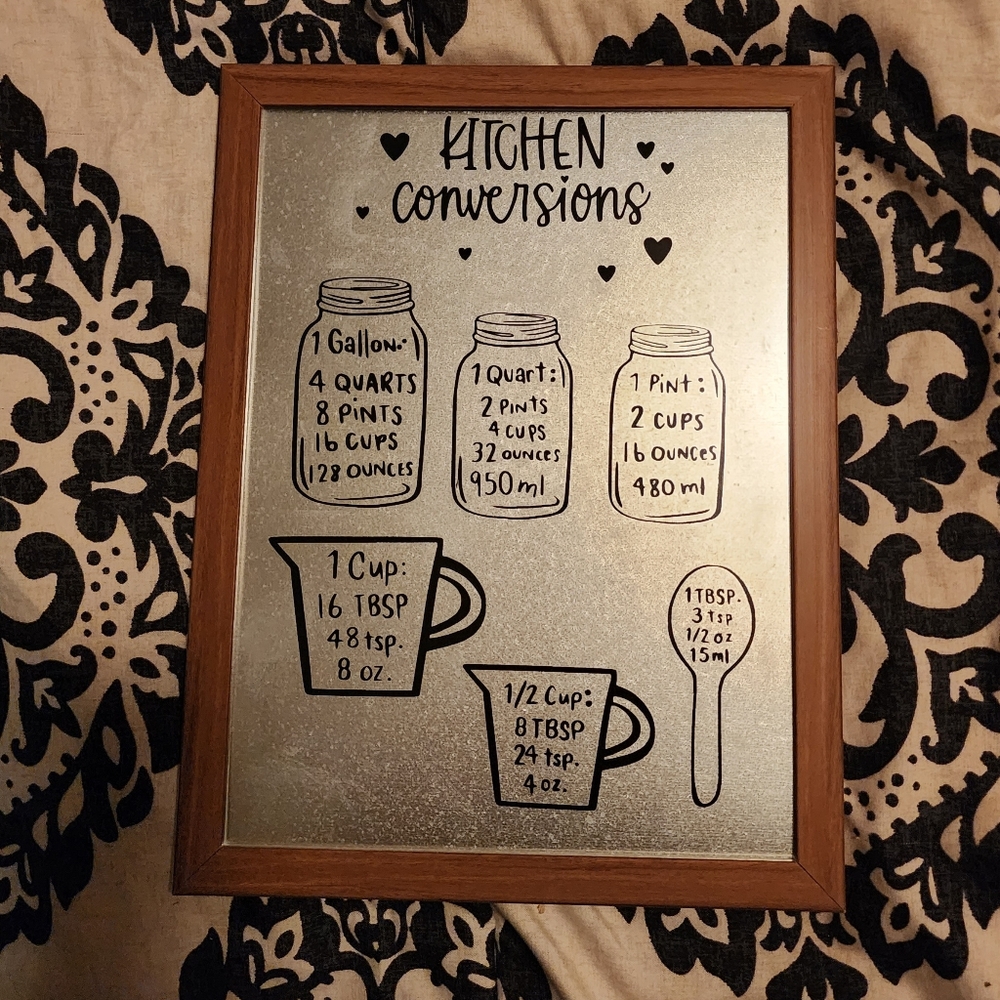 KITCHEN
conversions
1 Gallon:
4 QUARTS
8 PINTS
16 CUPS
128 OUNCES
1 Quart:
2 PINTS
4 CUPS
32 OUNCES
950ml
1 Pint:
2 CUPS
16 OUNCES
480 ml
1 Cup:
16 TBSP
48 tsp.
8 oz.
1/2 Cup:
8 TBSP
24 tsp.
4 oz.
1 TBSP.
3 tsp
1/2 oz
15ml